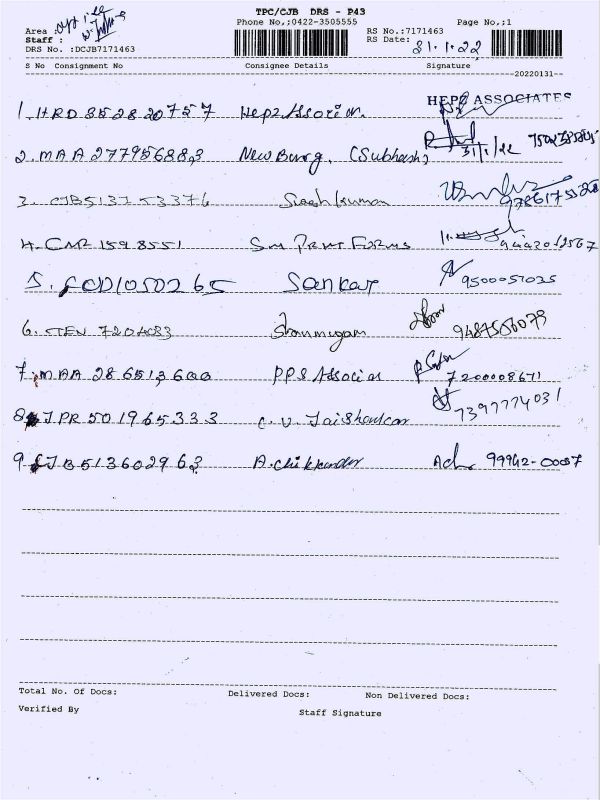 TPC/CJB DRS - P43
Phone No,:0422-3505555
Page No,:1
Area :
Staff :
DRS No. :DCJB7171463
RS No.:7171463
RS Date: 31.1.22
S No Consignment No Consignee Details Signature
20220131
1. HRD 852820757 Hepz Associ
HEPZ ASSOCIATES
2. MAA 277956883 New Burg. (Subhash) 31/1/22
3. CJB513753376
4. CMR 1598551 Sm Print Forms
5. 1050265 Sankar 9500057025
6. 7204083 Shanmugam
7. MAA 286513600 PPS Associa 7200008671
8. JPR 501965333 C. V. Jaishankar 7397774031
9. CJB513602963 99942-00
Total No. Of Docs: Delivered Docs: Non Delivered Docs:
Verified By Staff Signature